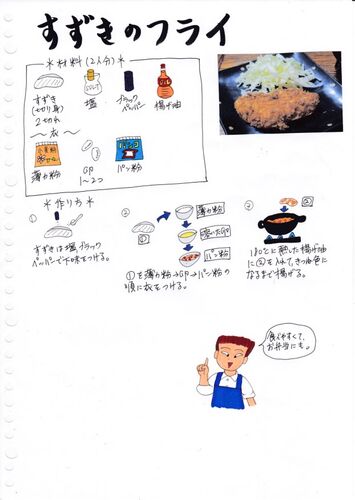 すずきのフライ
*材料(2人分)*
すずき
(切り身)
2切れ
塩
ブラック
ペッパー
揚げ油
〜衣〜
薄力粉
卵
1〜2つ
パン粉
*作り方*
①
すずきは塩、ブラック
ペッパーで下味をつける。
②
①
薄力粉
溶いた卵
パン粉
①を薄力粉→卵→パン粉の
順に衣をつける。
③
②
180℃に熱した揚げ油
に②を入れてきつね色に
なるまで揚げる。
食べやすくて、
お弁当にも。